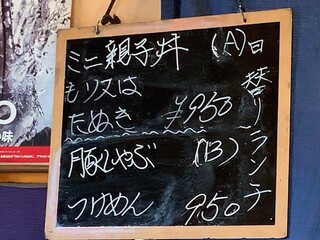 日替りランチ
(A)
ミニ親子丼
もり又は
たぬき ¥950
(B)
豚しゃぶ
つけめん 950
の味